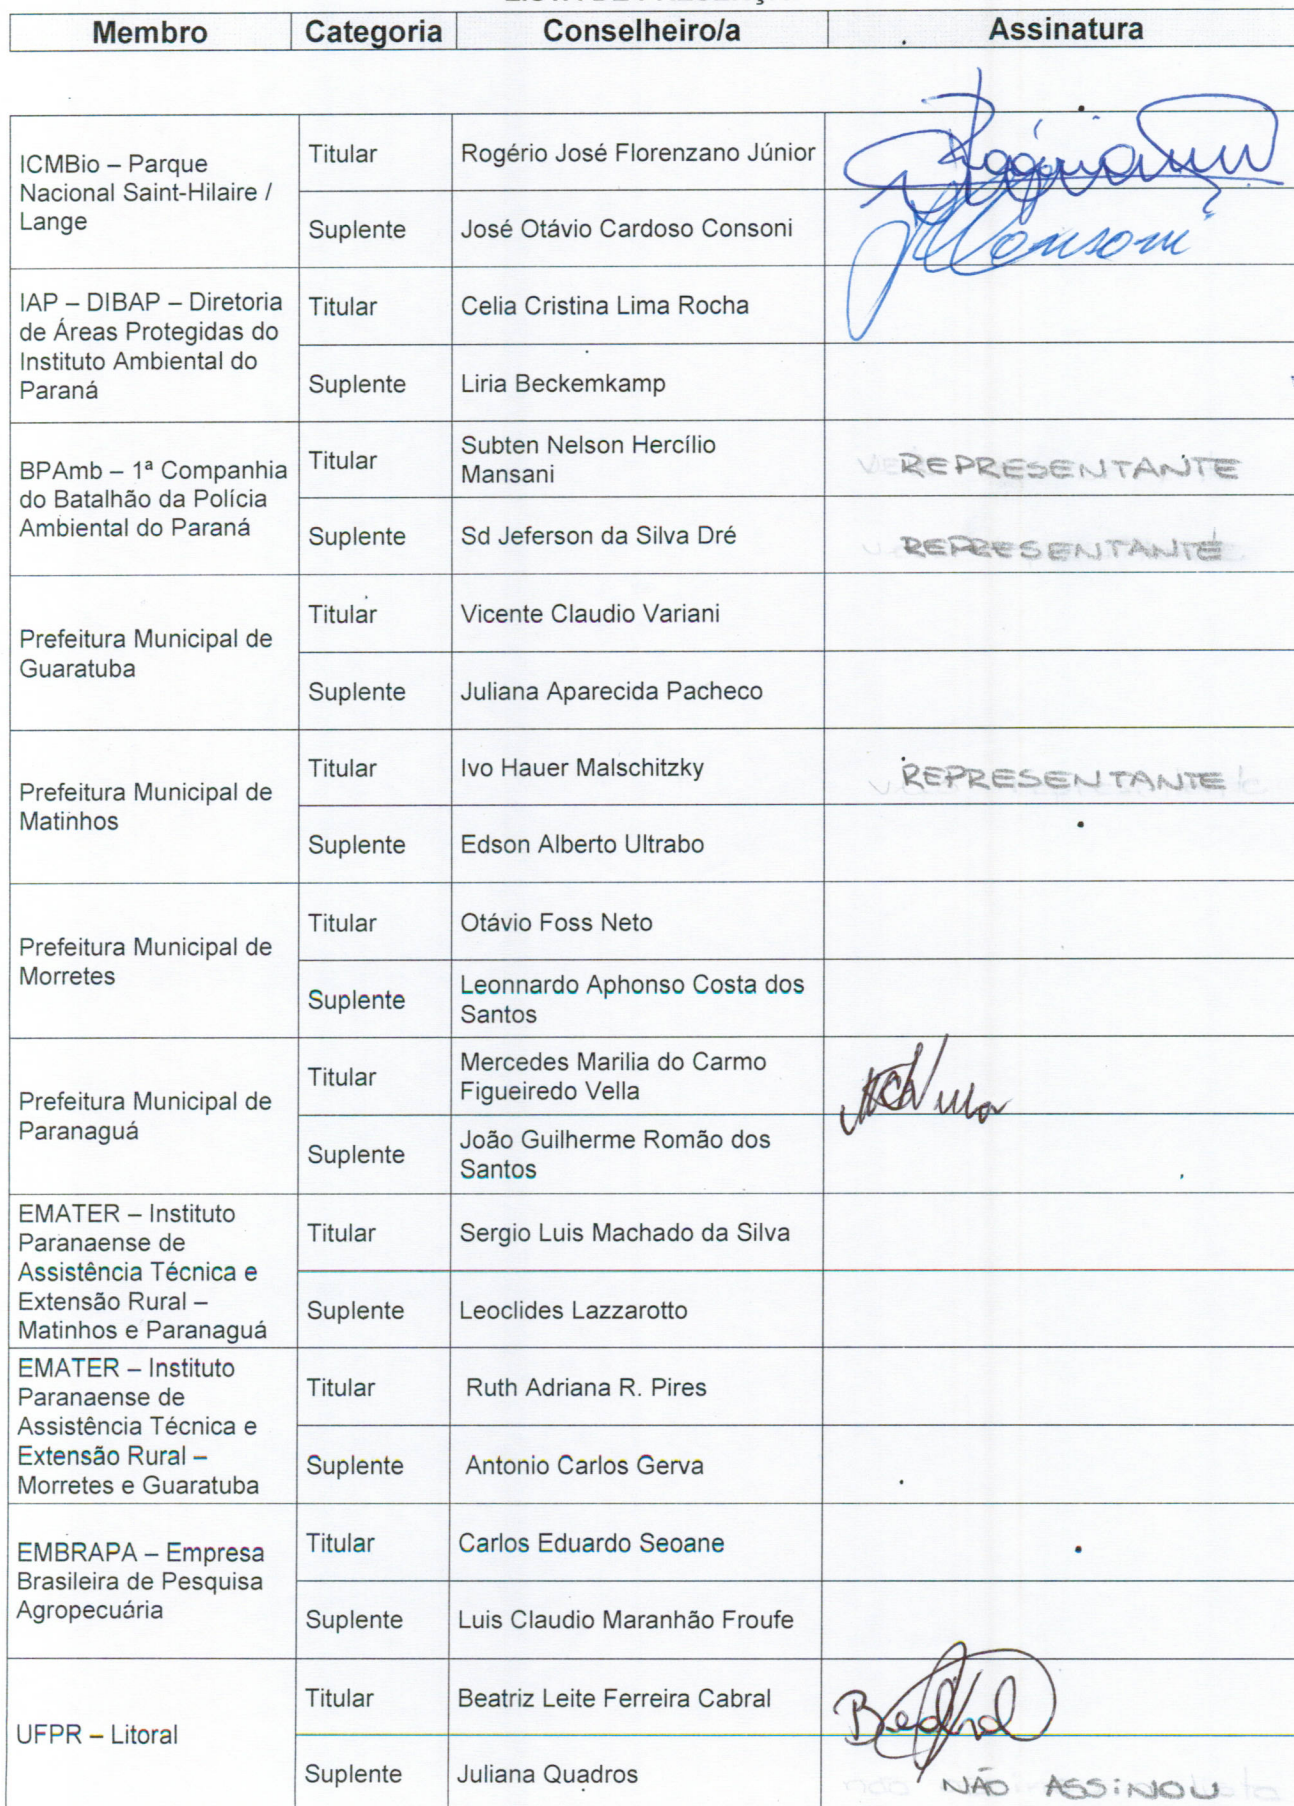 Membro Categoria Conselheiro/a Assinatura
ICMBio – Parque
Nacional Saint-Hilaire /
Lange
Titular Rogério José Florenzano Júnior
Suplente José Otávio Cardoso Consoni
Consoni
IAP – DIBAP – Diretoria
de Áreas Protegidas do
Instituto Ambiental do
Paraná
Titular Celia Cristina Lima Rocha
Suplente Liria Beckemkamp
BPAmb – 1ª Companhia
do Batalhão da Polícia
Ambiental do Paraná
Titular Subten Nelson Hercílio
Mansani
REPRESENTANTE
Suplente Sd Jeferson da Silva Dré REPRESENTANTE
Prefeitura Municipal de
Guaratuba
Titular Vicente Claudio Variani
Suplente Juliana Aparecida Pacheco
Prefeitura Municipal de
Matinhos
Titular Ivo Hauer Malschitzky REPRESENTANTE
Suplente Edson Alberto Ultrabo
Prefeitura Municipal de
Morretes
Titular Otávio Foss Neto
Suplente Leonnardo Aphonso Costa dos
Santos
Prefeitura Municipal de
Paranaguá
Titular Mercedes Marilia do Carmo
Figueiredo Vella
Suplente João Guilherme Romão dos
Santos
EMATER – Instituto
Paranaense de
Assistência Técnica e
Extensão Rural –
Matinhos e Paranaguá
Titular Sergio Luis Machado da Silva
Suplente Leoclides Lazzarotto
EMATER – Instituto
Paranaense de
Assistência Técnica e
Extensão Rural –
Morretes e Guaratuba
Titular Ruth Adriana R. Pires
Suplente Antonio Carlos Gerva
EMBRAPA – Empresa
Brasileira de Pesquisa
Agropecuária
Titular Carlos Eduardo Seoane
Suplente Luis Claudio Maranhão Froufe
UFPR – Litoral
Titular Beatriz Leite Ferreira Cabral
Suplente Juliana Quadros NÃO ASSINOU